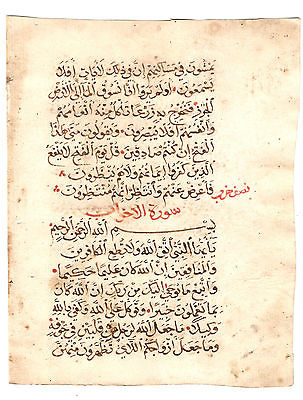 يمشون في مساكنهم ان في ذلك لآيات افلا
يسمعون اولم يروا انا نسوق الماء الى الارض
الجرز فنخرج به زرعا تاكل منه انعامهم
وانفسهم افلا يبصرون ويقولون متى هذا
الفتح ان كنتم صادقين قل يوم الفتح لا ينفع
الذين كفروا ايمانهم ولا هم ينظرون
فاعرض عنهم وانتظر انهم منتظرون
نصف حزب
سورة الاحزاب
بسم الله الرحمن الرحيم
يا ايها النبي اتق الله ولا تطع الكافرين
والمنافقين ان الله كان عليما حكيما
واتبع ما يوحى اليك من ربك ان الله كان
بما تعملون خبيرا وتوكل على الله وكفى بالله
وكيلا ما جعل الله لرجل من قلبين في جوفه
وما جعل ازواجكم اللائي تظهرون منهن